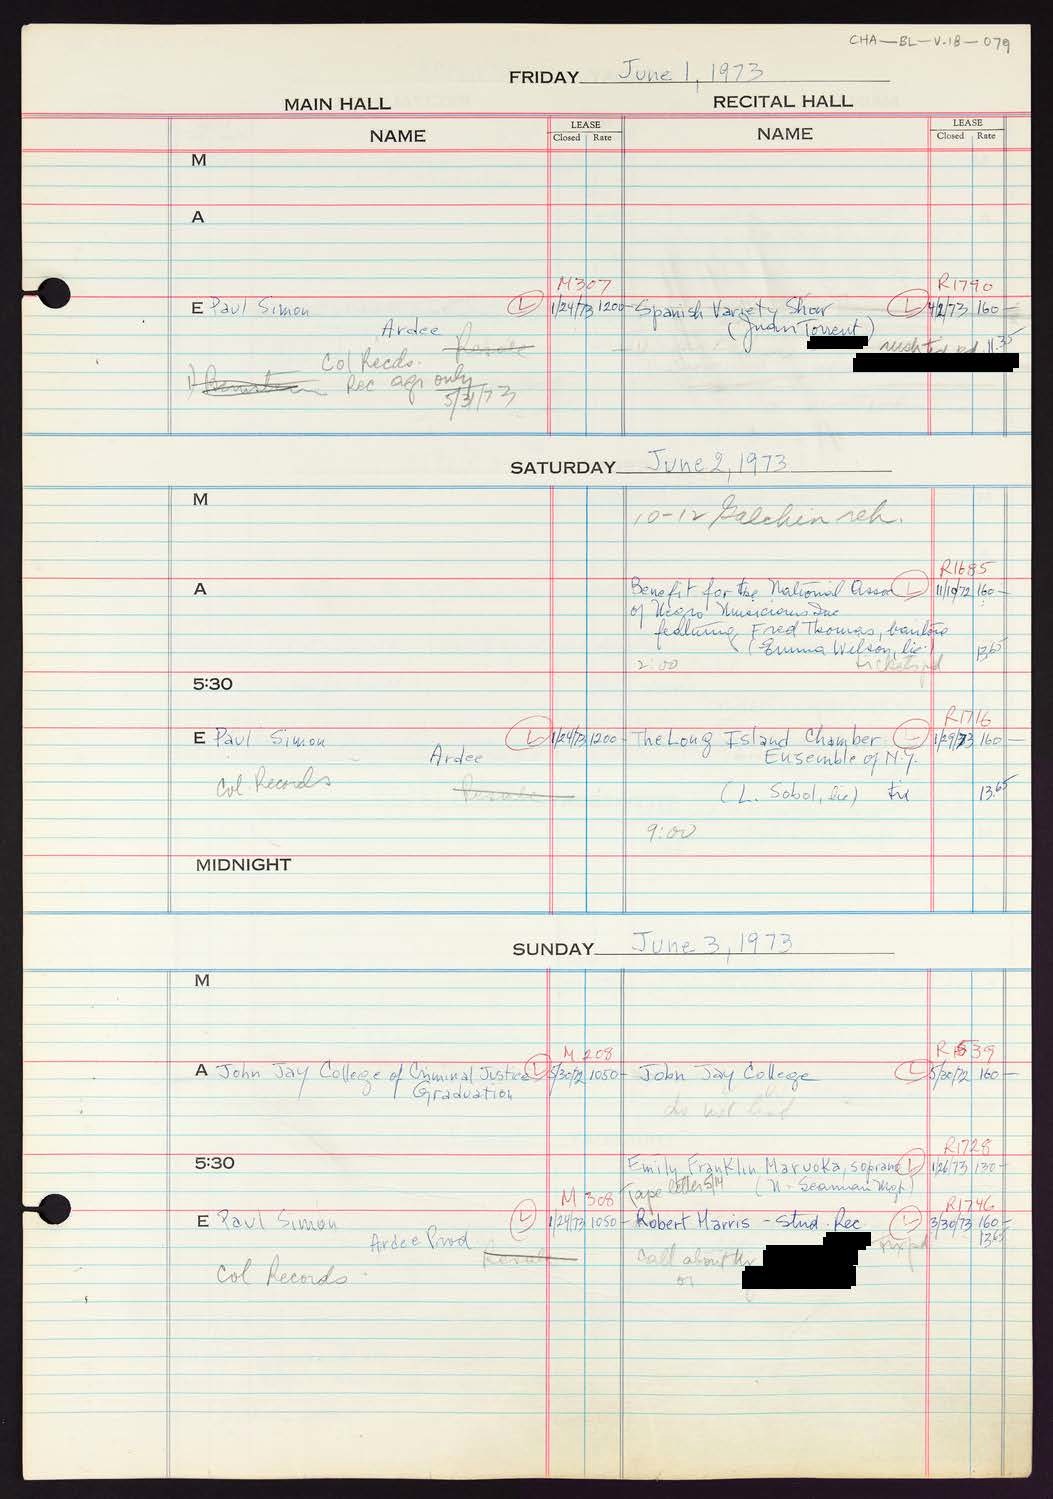 CHA—BL—V.18—079
FRIDAY June 1, 1973
MAIN HALL RECITAL HALL
NAME LEASE Closed Rate NAME LEASE Closed Rate
M
A
M307 R1790
E Paul Simon L 1/24/73 1200– Spanish Variety Show L 4/2/73 160—
Ardee (Juan Torrent)
Resale pd 11.35
Col Recds.
Rec agr only
5/31/73
SATURDAY June 2, 1973
M 10-12 Galchin reh.
R1685
A Benefit for the National Assoc L 11/10/72 160—
of Negro Musicians Inc
featuring Fred Thomas, baritone
(Emma Wilson, lic.) 13.65
2:00 tickets pd
5:30
R1716
E Paul Simon L 1/24/73 1200– The Long Island Chamber L 1/29/73 160—
Ardee Ensemble of N.Y.
Col. Records Resale
(L. Sobol, lic) tix 13.65
9:00
MIDNIGHT
SUNDAY June 3, 1973
M
M 208 R1539
A John Jay College of Criminal Justice L 5/30/72 1050– John Jay College L 5/30/72 160—
Graduation do not lead
R1728
5:30 Emily Franklin Maruoka, soprano L 1/26/73 130–
Tape letter 5/14 (N. Seaman Mgr.)
M 308 R1746
E Paul Simon L 1/24/73 1050– Robert Harris - Stud. Rec L 3/30/73 160–
Ardee Prod tix pd 13.65
Resale Call about
Col Records or